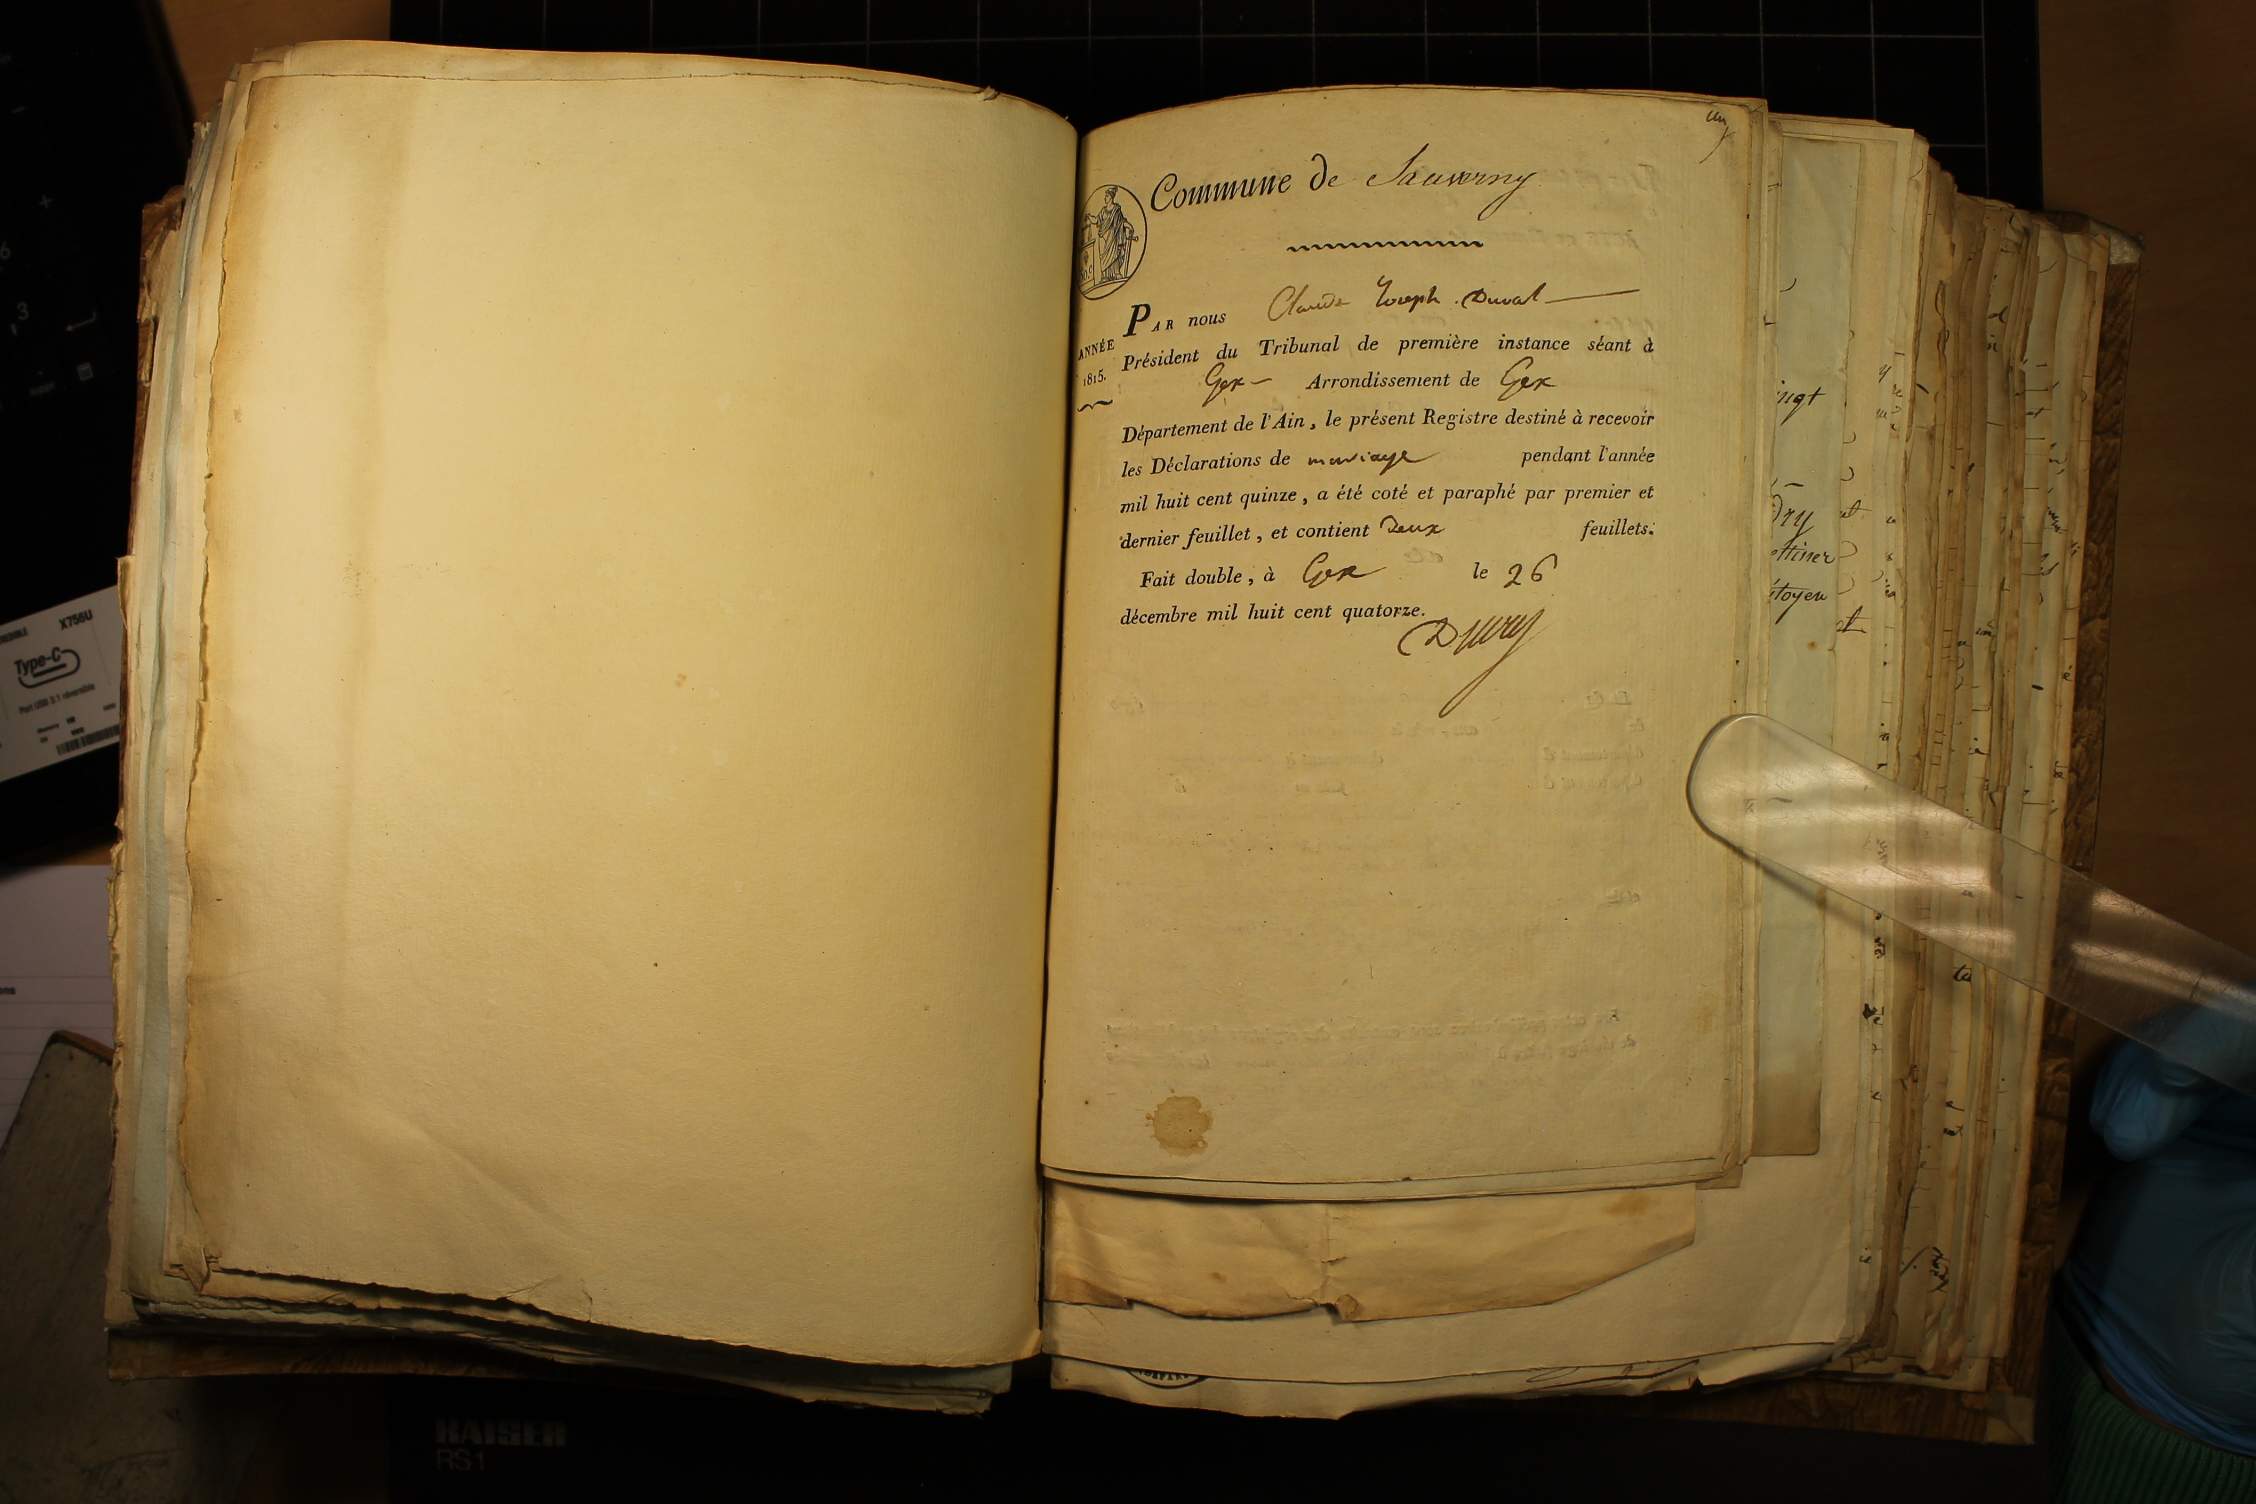 un
Commune de Sauverny
PAR nous Claude Joseph Duval
ANNÉE
1815.
Président du Tribunal de première instance séant à
Gex Arrondissement de Gex
Département de l'Ain, le présent Registre destiné à recevoir
les Déclarations de mariage pendant l'année
mil huit cent quinze, a été coté et paraphé par premier et
dernier feuillet, et contient Deux feuillets.
Fait double, à Gex le 26
décembre mil huit cent quatorze.
X756U
Type-C
KAISER
RS1